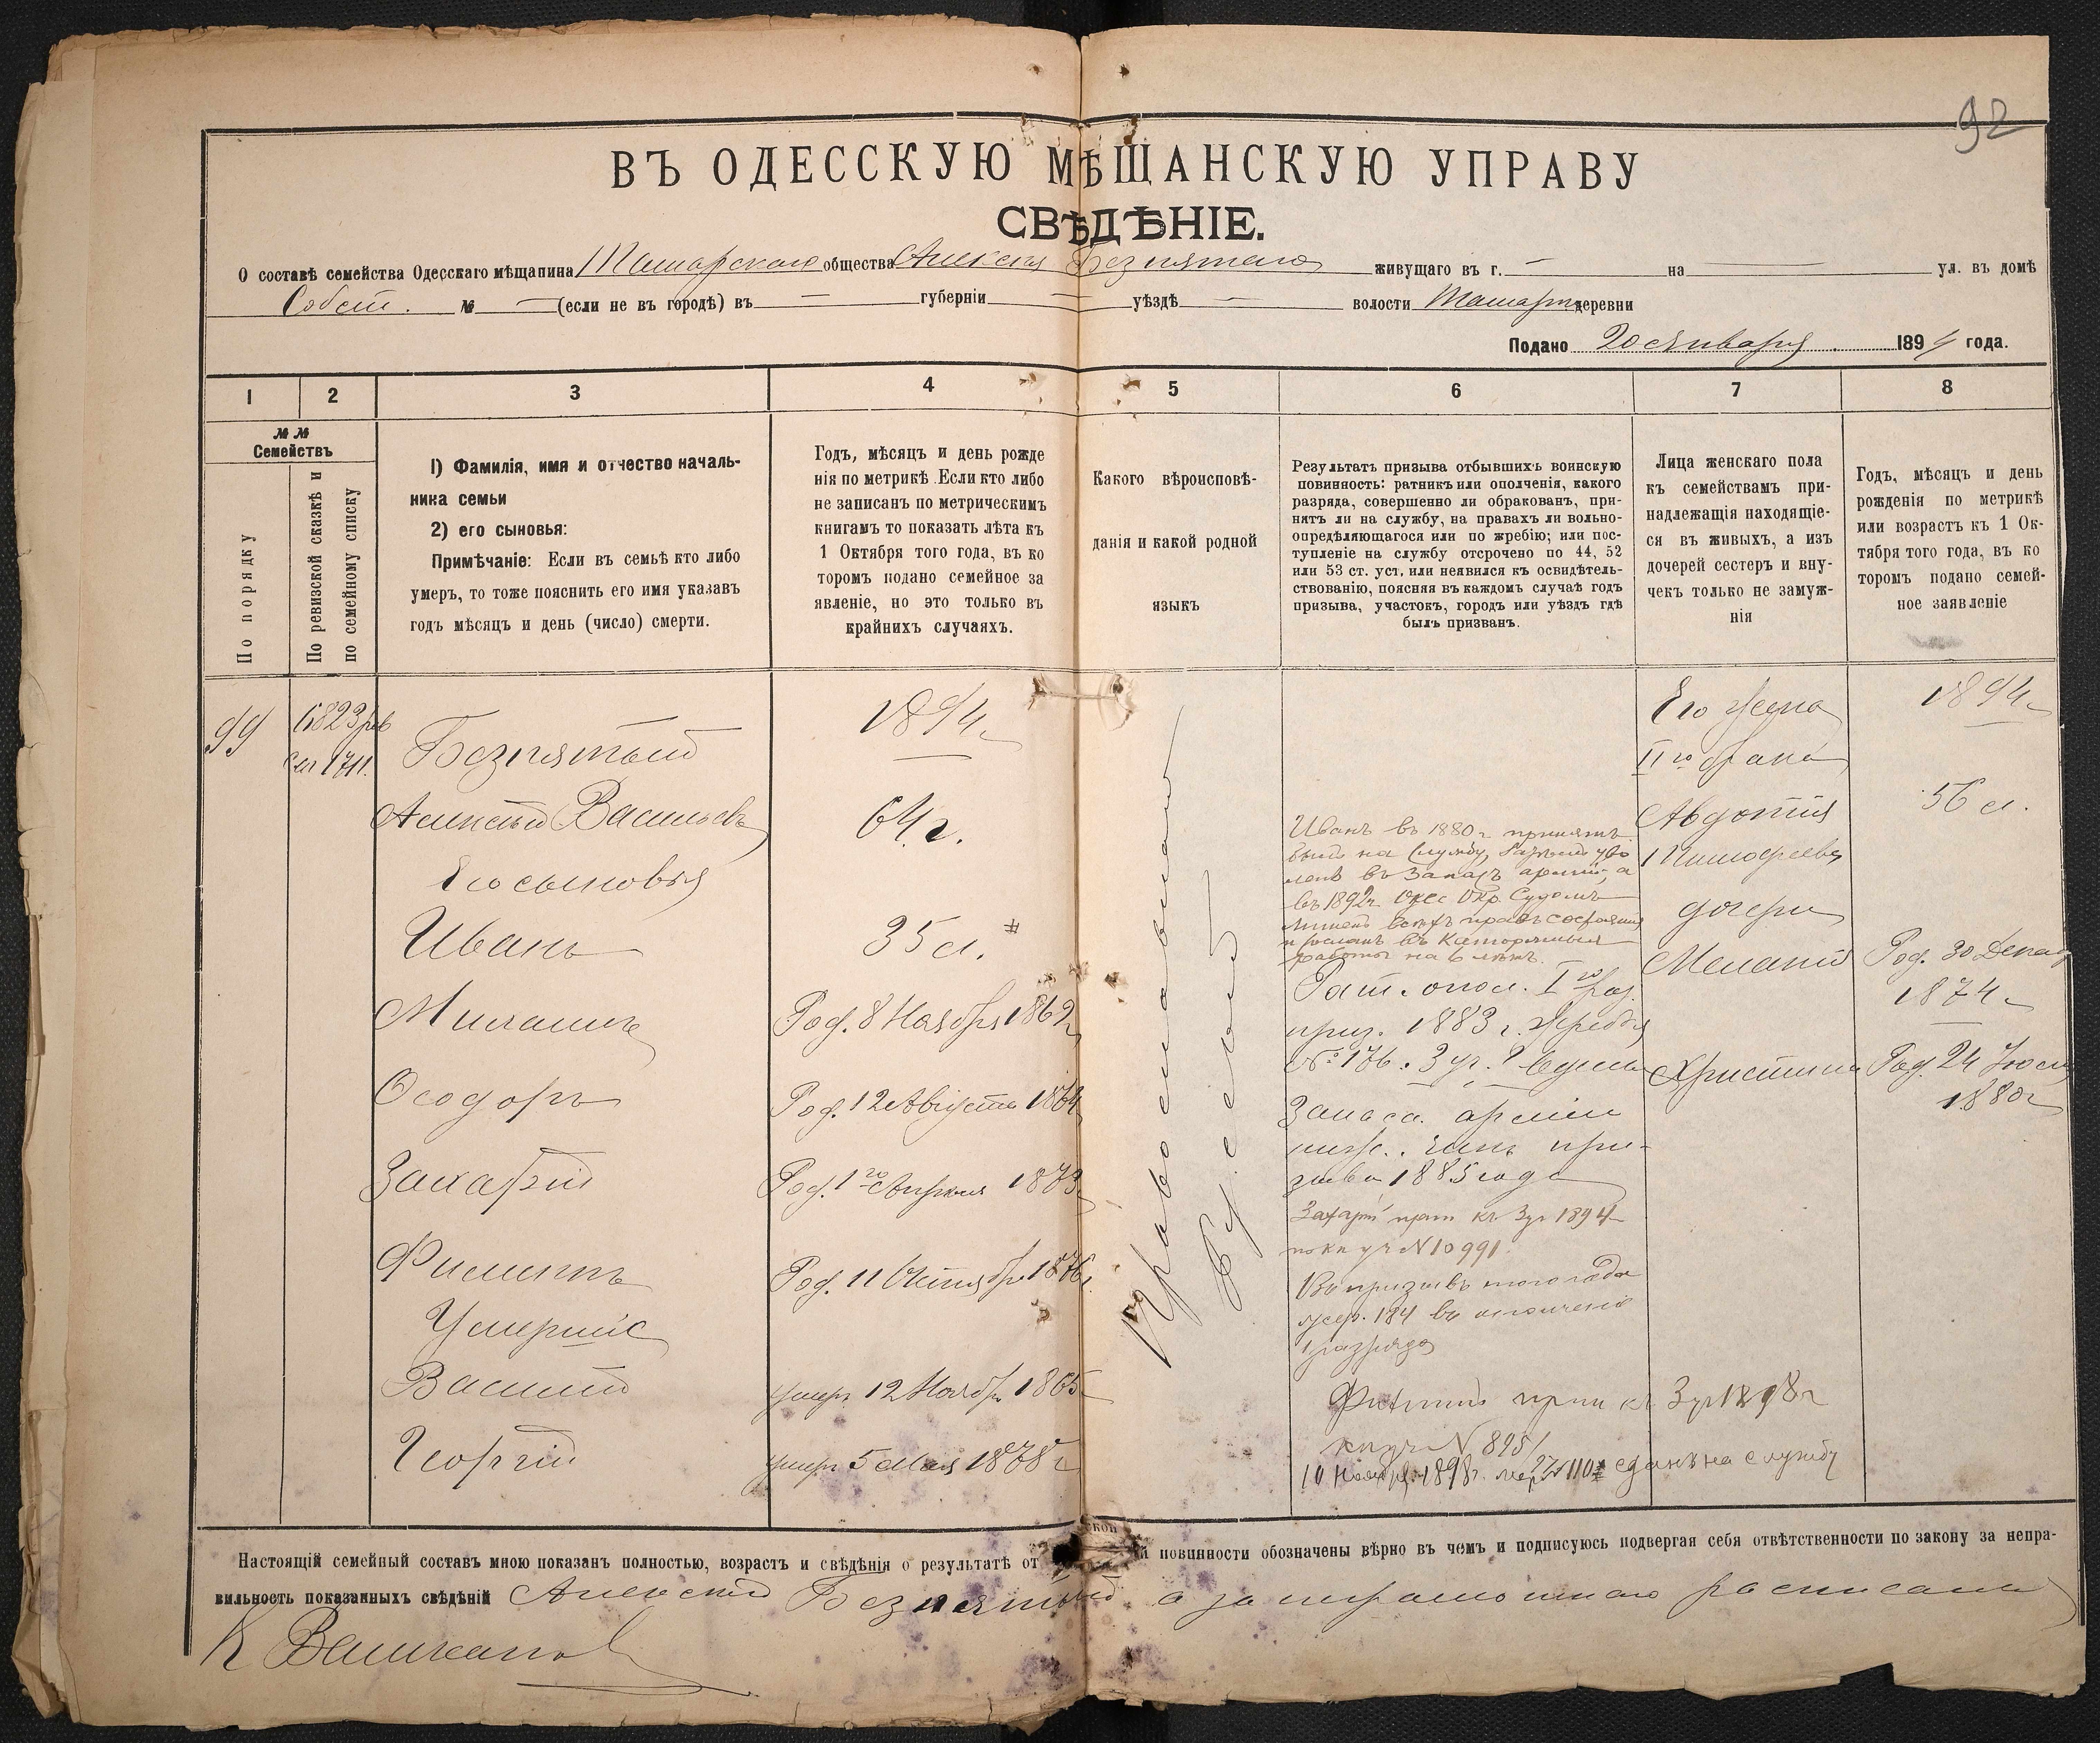 92
ВЪ ОДЕССКУЮ МѢЩАНСКУЮ УПРАВУ
СВѢДѢНІЕ.
О составѣ семейства Одесскаго мѣщанина Ташарскаго общества Алексея Безпятаго живущаго въ г. — на — ул. въ домѣ
Собст. № — (если не въ городѣ) въ — губерніи — уѣздѣ — волости деревни
Подано 20 Января 1894 года.
1 2 3 4 5 6 7 8
№ № Семействъ
По порядку
По ревизской сказкѣ и по семейному списку
1) Фамилія, имя и отчество началь-
ника семьи
2) его сыновья:
Примѣчаніе: Если въ семьѣ кто либо
умеръ, то тоже пояснить его имя указавъ
годъ мѣсяцъ и день (число) смерти.
Годъ, мѣсяцъ и день рожде
нія по метрикѣ. Если кто либо
не записанъ по метрическимъ
книгамъ то показать лѣта къ
1 Октября того года, въ ко
торомъ подано семейное за
явленіе, но это только въ
крайнихъ случаяхъ.
Какого вѣроисповѣ-
данія и какой родной
языкъ
Результатъ призыва отбывшихъ воинскую
повинность: ратникъ или ополченія, какого
разряда, совершенно ли обракованъ, при-
нятъ ли на службу, на правахъ ли вольно-
опредѣляющагося или по жребію; или пос-
тупленіе на службу отсрочено по 44, 52
или 53 ст. уст, или неявился къ освидѣтель-
ствованію, поясняя въ каждомъ случаѣ годъ
призыва, участокъ, городъ или уѣздъ гдѣ
былъ призванъ.
Лица женскаго пола
къ семействамъ при-
надлежащія находящіе-
ся въ живыхъ, а изъ
дочерей сестеръ и вну-
чекъ только не замуж-
нія
Годъ, мѣсяцъ и день
рожденія по метрикѣ
или возрастъ къ 1 Ок-
тября того года, въ ко
торомъ подано семей-
ное заявленіе
99
6823 рев
1711.
Безпятый
Алексѣй Васильевъ
Его сыновья
Иванъ
Михаилъ
Ѳеодоръ
Захарій
Филиппъ
Умершіе
Василій
Георгій
1894 г.
64 г.
35 л. #
Род. 8 Ноября 1862
Род. 12 Августа 1864
Род. 1го Апреля 1873
Род. 11 Октября 1876 г.
умер. 12 Ноября 1865
умер. 5 Мая 1878 г
Православнаго
Русскій
Иванъ въ 1880 г принятъ
былъ на службу, уво
ленъ въ Запасъ арміи, а
въ 1892 г. Одес Окр. Судомъ
лишенъ всѣхъ правъ состоянія
и сосланъ въ Каторжныя
работы на 6 лѣтъ.
Рат. опол. Iго раз.
приз. 1883 г. жребія
№ 176. 3 уч.
Запаса арміи
ниж. чинъ при-
зыва 1885 года
Захарій прип къ 3 уч 1894
№ 10991.
Въ призывъ того года
жер. 184 въ ополченіе
1 разряда
Филиппъ прип къ 3 уч 1898 г
№ 895/
10 Ноября 1898 г. сданъ на службу
Его жена
IIго брака
Авдотія
Тимофеева
дочери
Меланія
Христина
1894 г.
56 л.
Род. 30 Декаб
1874 г.
Род. 24 Іюля
1880 г
Настоящій семейный составъ мною показанъ полностью, возрастъ и свѣдѣнія о результатѣ от ской повинности обозначены вѣрно въ чемъ и подписуюсь подвергая себя отвѣтственности по закону за непра-
вильность показанныхъ свѣдѣній Алексей Безпятый а за неграмотнаго росписался
К Вашкановъ